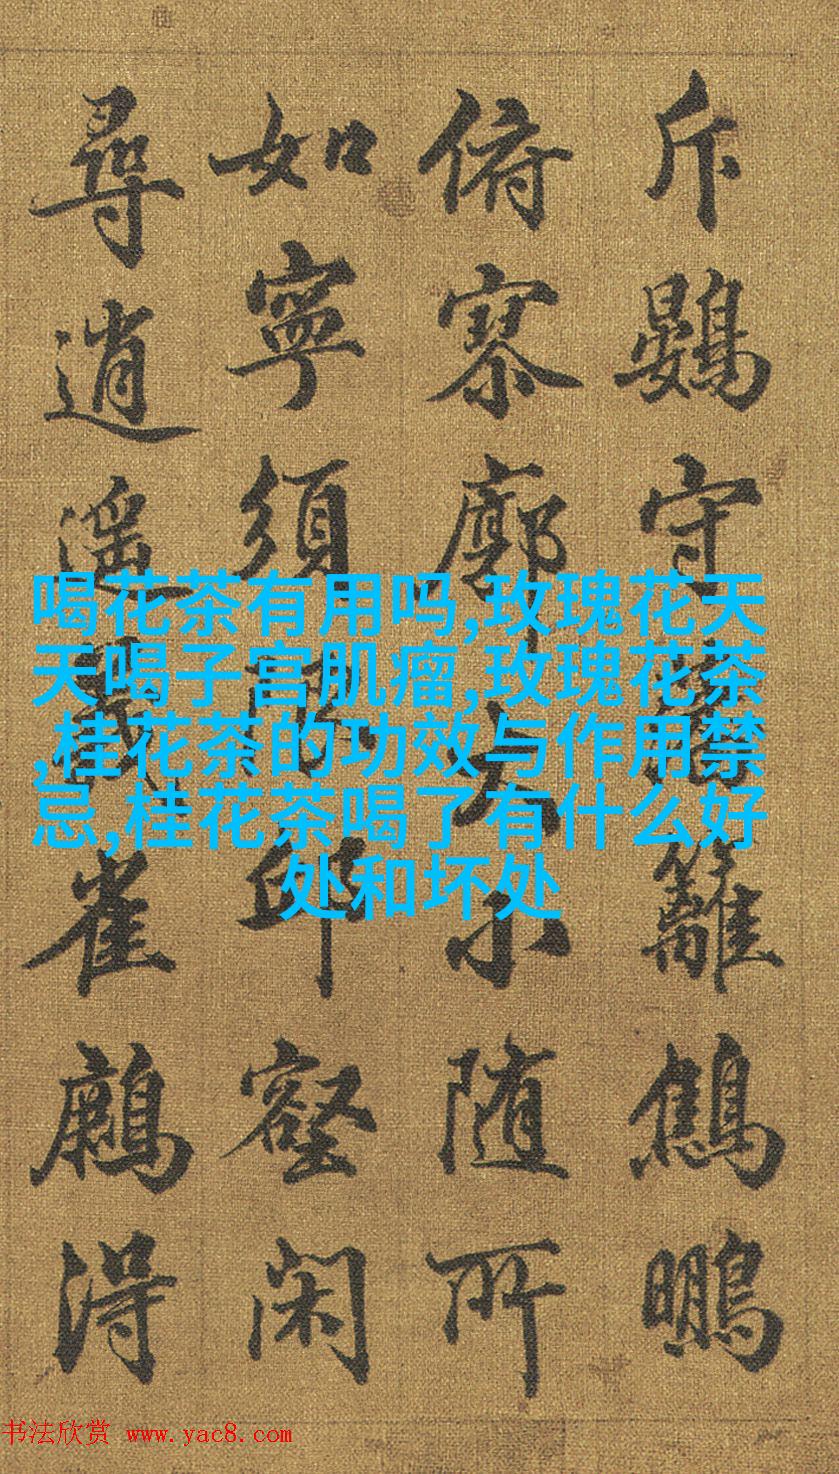 斥鷃守籬鷦鵬
俯寥廓大小随所
如寧須邱壑闲
尋逍遥雀得
喝花茶有用吗,玫瑰花天
天喝子宫肌瘤,玫瑰花茶
,桂花茶的功效与作用禁
忌,桂花茶喝了有什么好
处和坏处
书法欣赏 www.yac8.com